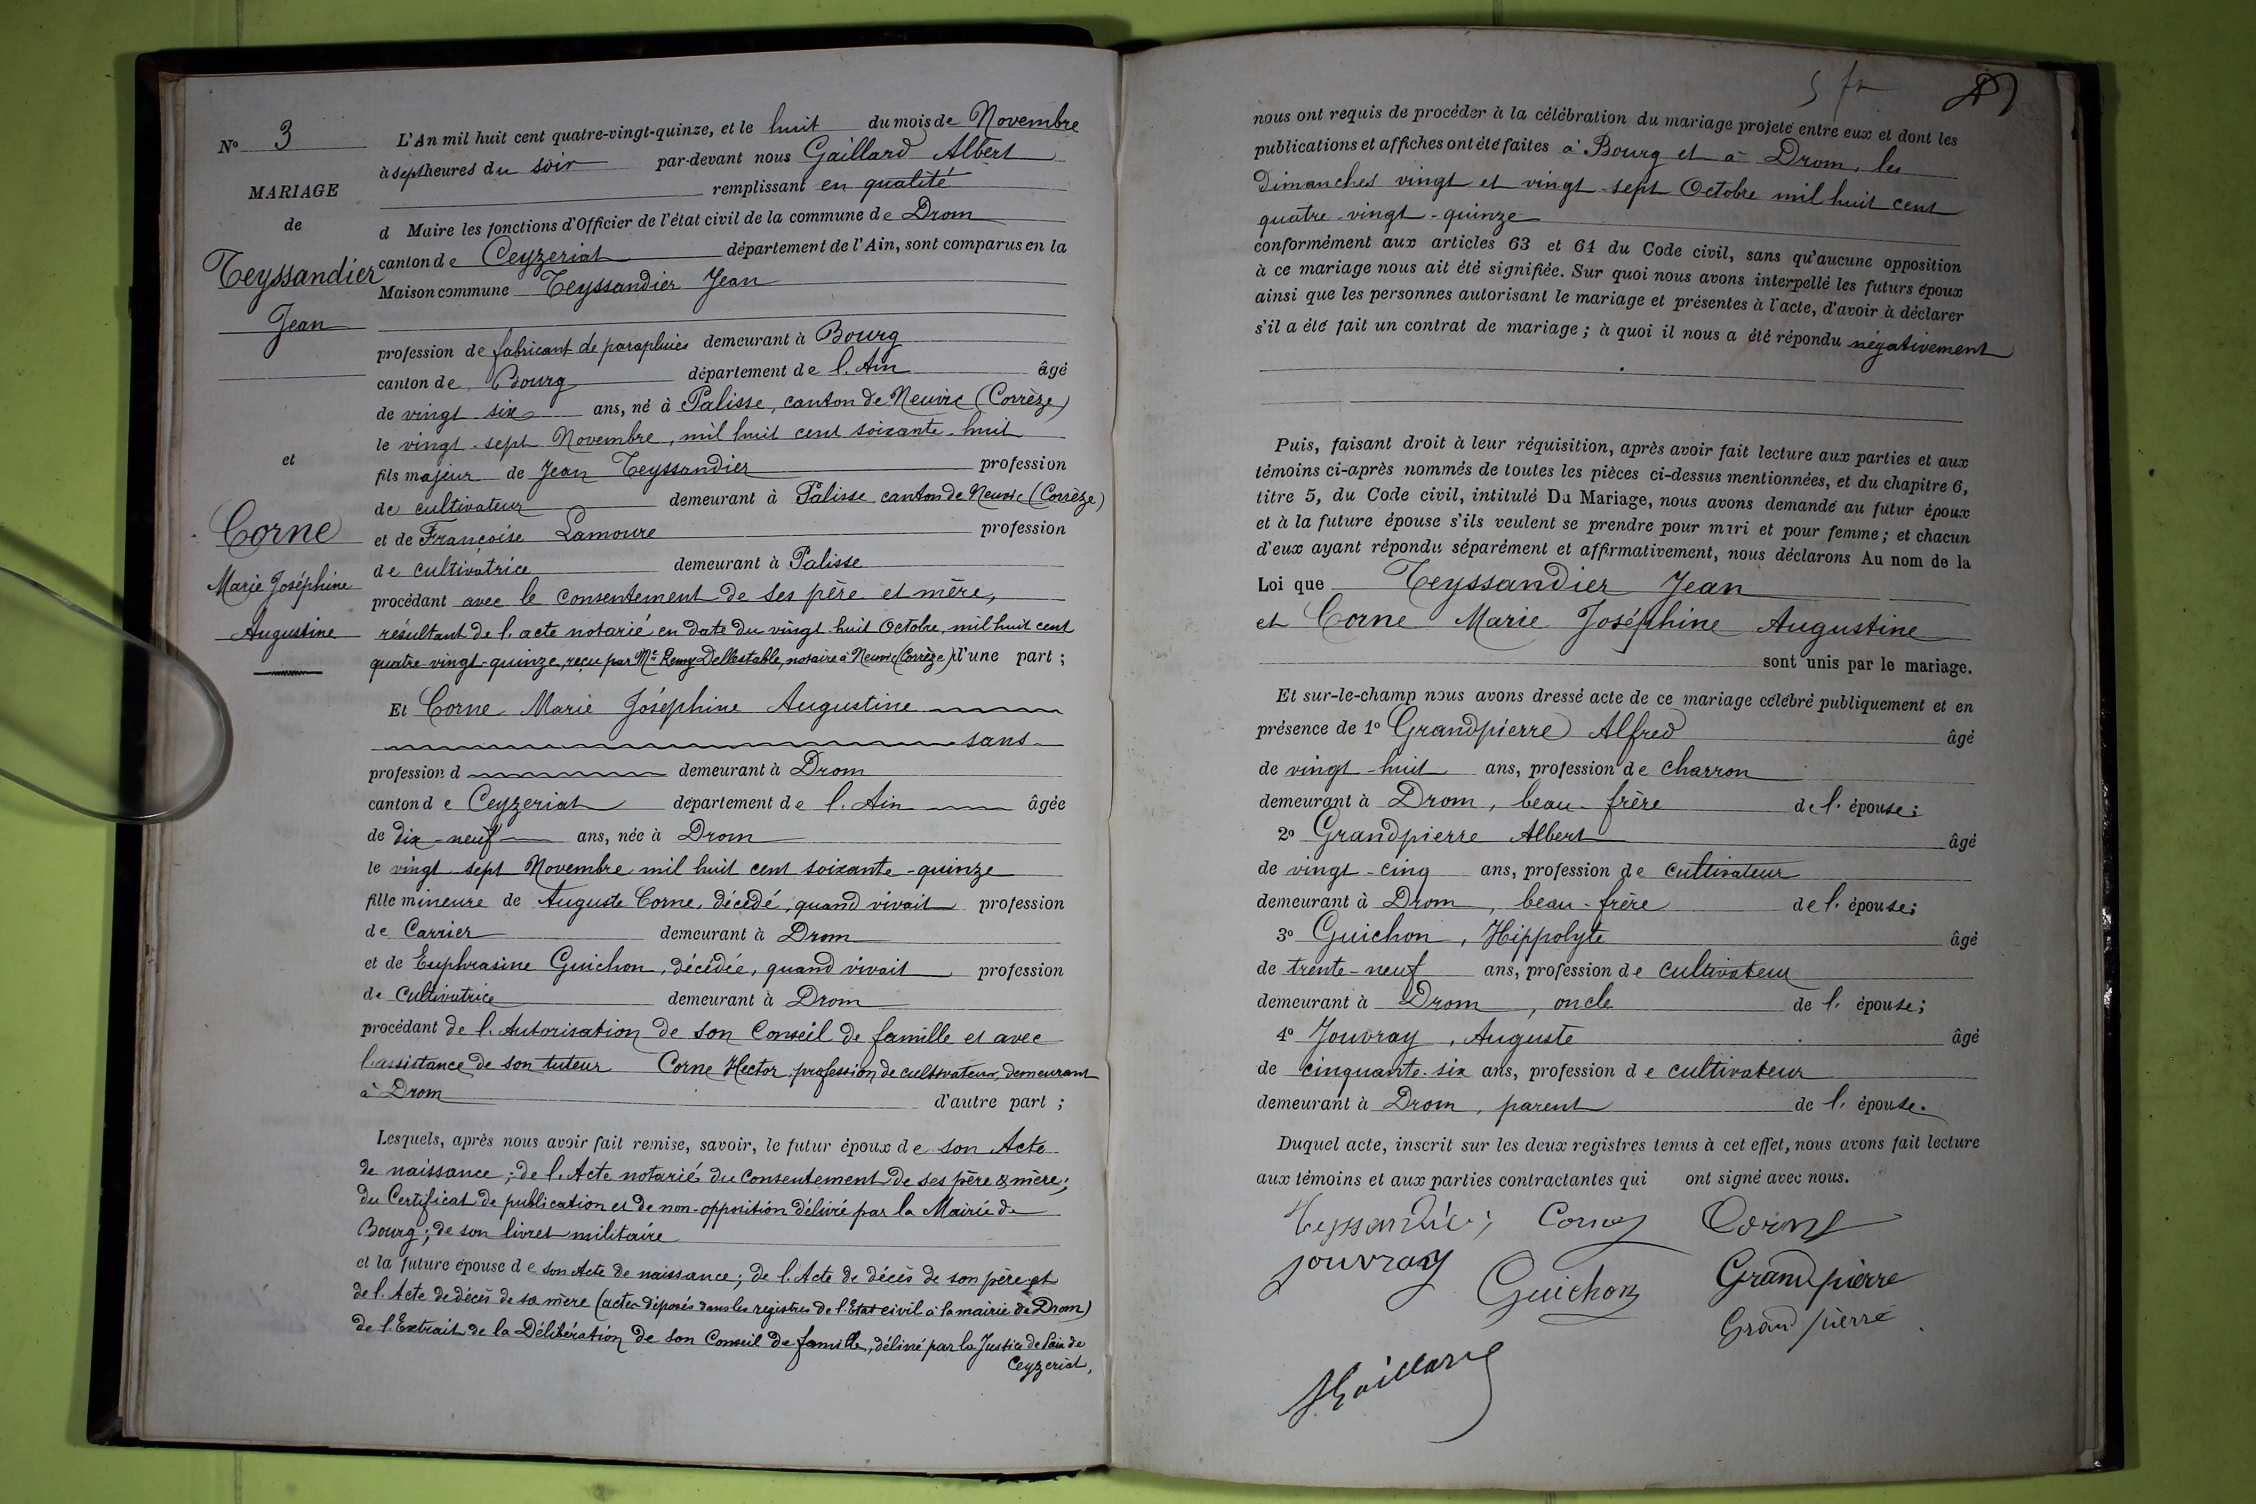 N° 3
MARIAGE
de
Teyssandier
Jean
et
Corne
Marie Joséphine
Augustine
L'An mil huit cent quatre-vingt-quinze, et le huit du mois de Novembre
à sept heures du soir par-devant nous Gaillard Albert
remplissant en qualité
d Maire les fonctions d'Officier de l'état civil de la commune de Drom
canton de Ceyzeriat département de l'Ain, sont comparus en la
Maison commune Teyssandier Jean
profession de fabricant de parapluies demeurant à Bourg
canton de Bourg département de l'Ain âgé
de vingt six ans, né à Palisse, canton de Neuvic (Corrèze)
le vingt-sept Novembre, mil huit cent soixante-huit
fils majeur de Jean Teyssandier profession
de cultivateur demeurant à Palisse canton de Neuvic (Corrèze)
et de Françoise Lamoure profession
de cultivatrice demeurant à Palisse
procédant avec le consentement de ses père et mère,
résultant de l'acte notarié en date du vingt huit Octobre, mil huit cent
quatre-vingt-quinze, reçu par Me Remy Dellestable, notaire à Neuvic (Corrèze) d'une part ;
Et Corne Marie Joséphine Augustine
sans
profession d demeurant à Drom
canton de Ceyzeriat département de l'Ain âgée
de dix-neuf ans, née à Drom
le vingt sept Novembre mil huit cent soixante-quinze
fille mineure de Auguste Corne, décédé, quand vivait profession
de Carrier demeurant à Drom
et de Euphrasine Guichon, décédée, quand vivait profession
de Cultivatrice demeurant à Drom
procédant de l'Autorisation de son Conseil de famille et avec
l'assistance de son tuteur Corne Hector, profession de cultivateur, demeurant
à Drom d'autre part ;
Lesquels, après nous avoir fait remise, savoir, le futur époux de son Acte
de naissance ; de l'Acte notarié du consentement de ses père & mère ;
du Certificat de publication et de non-opposition délivré par la Mairie de
Bourg ; de son livret militaire
et la future épouse de son Acte de naissance ; de l'Acte de décès de son père et
de l'Acte de décès de sa mère (actes déposés dans les registres de l'Etat civil à la mairie de Drom)
de l'Extrait de la Délibération de son Conseil de famille, délivré par la Justice de Paix de
Ceyzeriat,
5 fr
nous ont requis de procéder à la célébration du mariage projeté entre eux et dont les
publications et affiches ont été faites à Bourg et à Drom, les
Dimanches vingt et vingt-sept Octobre mil huit cent
quatre-vingt-quinze
conformément aux articles 63 et 64 du Code civil, sans qu'aucune opposition
à ce mariage nous ait été signifiée. Sur quoi nous avons interpellé les futurs époux
ainsi que les personnes autorisant le mariage et présentes à l'acte, d'avoir à déclarer
s'il a été fait un contrat de mariage ; à quoi il nous a été répondu négativement
Puis, faisant droit à leur réquisition, après avoir fait lecture aux parties et aux
témoins ci-après nommés de toutes les pièces ci-dessus mentionnées, et du chapitre 6,
titre 5, du Code civil, intitulé Du Mariage, nous avons demandé au futur époux
et à la future épouse s'ils veulent se prendre pour mari et pour femme ; et chacun
d'eux ayant répondu séparément et affirmativement, nous déclarons Au nom de la
Loi que Teyssandier Jean
et Corne Marie Joséphine Augustine
sont unis par le mariage.
Et sur-le-champ nous avons dressé acte de ce mariage célébré publiquement et en
présence de 1° Grandpierre Alfred âgé
de vingt-huit ans, profession de charron
demeurant à Drom, beau-frère de l'épouse ;
2° Grandpierre Albert âgé
de vingt-cinq ans, profession de cultivateur
demeurant à Drom, beau-frère de l'épouse ;
3° Guichon, Hippolyte âgé
de trente-neuf ans, profession de cultivateur
demeurant à Drom, oncle de l'épouse ;
4° Jouvray, Auguste âgé
de cinquante-six ans, profession de cultivateur
demeurant à Drom, parent de l'épouse.
Duquel acte, inscrit sur les deux registres tenus à cet effet, nous avons fait lecture
aux témoins et aux parties contractantes qui ont signé avec nous.
Teyssandier Corne Corne
jouvray Guichon Grandpierre
Grandpierre
AGaillard